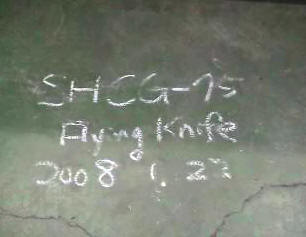 SHCG-15
Flying Knife
2008 1. 23